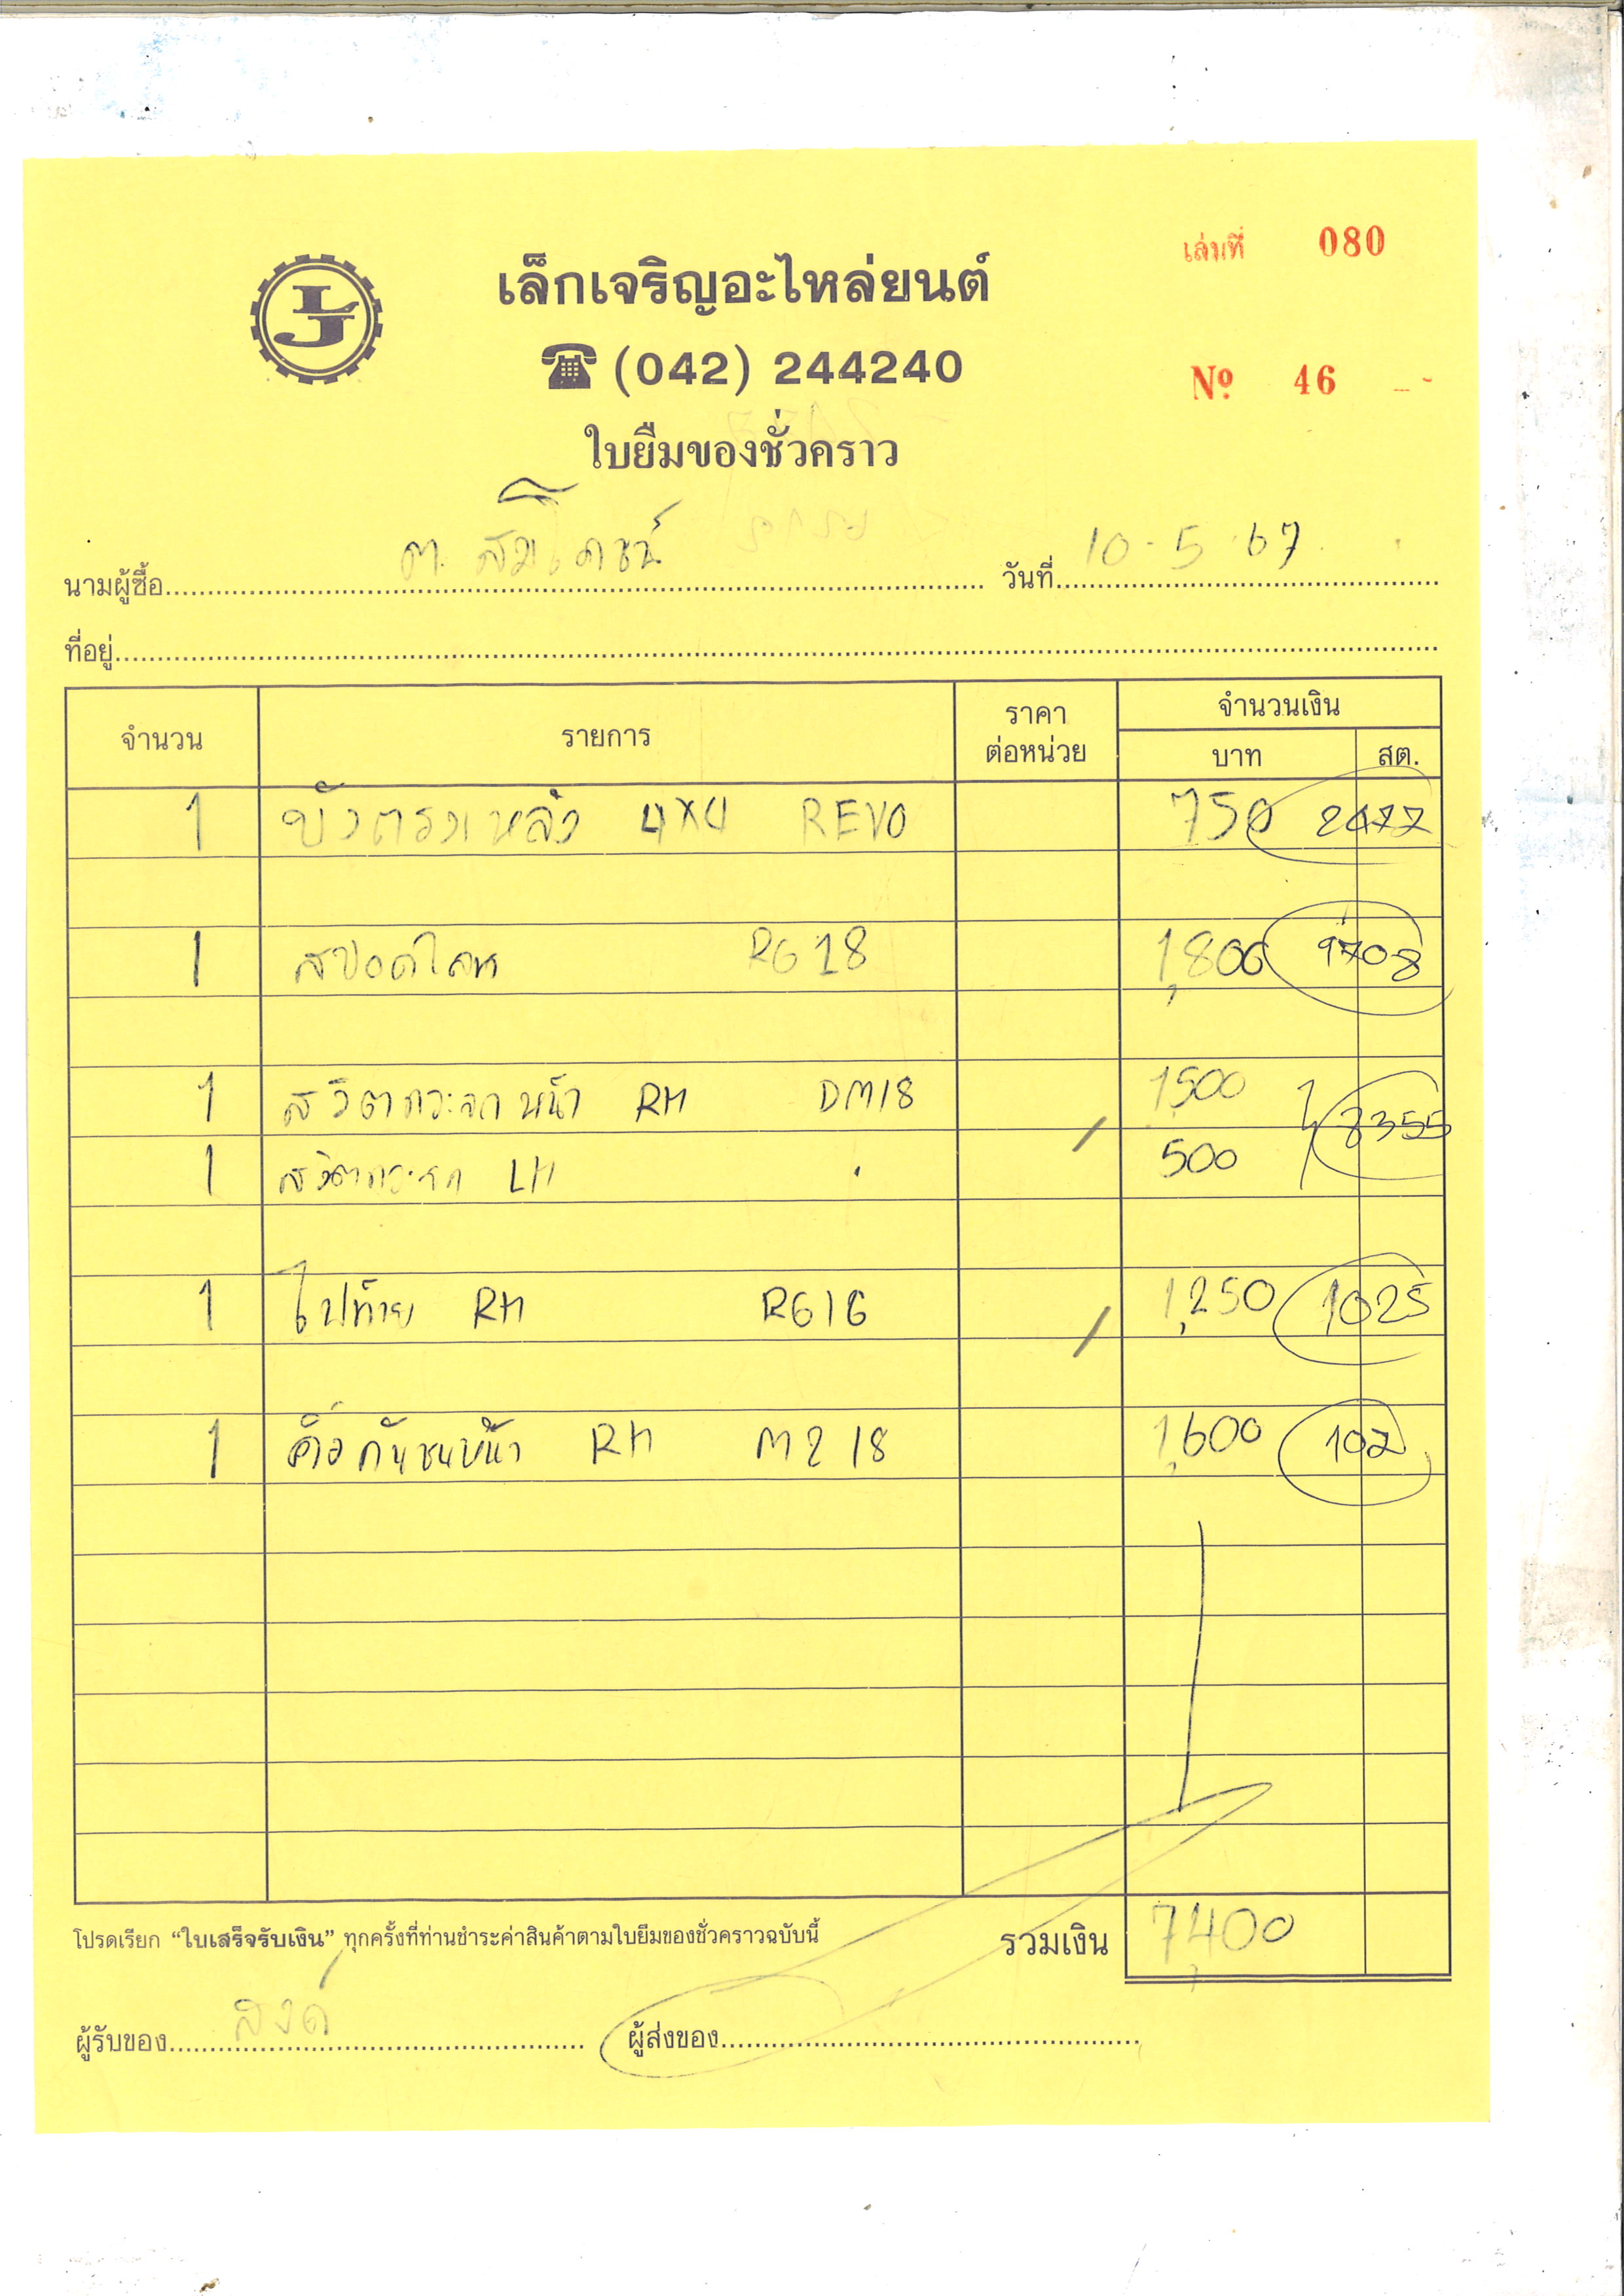 เล่มที่ 080
LJ
เล็กเจริญอะไหล่ยนต์
(042) 244240
Nº 46
ใบยืมของชั่วคราว
นามผู้ซื้อ วันที่ 10-5-67
ที่อยู่
จำนวน รายการ ราคาต่อหน่วย จำนวนเงิน
บาท สต.
1 บังตรงหลัง 4x4 REVO 750 2477
1 สปอตไลท RG18 1,800 9708
1 สวิตกระจกหน้า RH DM18 1500 8355
1 สวิตกระจก LH 500
1 ไฟท้าย RH RG16 1,250 1025
1 คิ้วกันชนหน้า RH M2 18 1,600 102
โปรดเรียก “ใบเสร็จรับเงิน” ทุกครั้งที่ท่านชำระค่าสินค้าตามใบยืมของชั่วคราวฉบับนี้ รวมเงิน 7,400
ผู้รับของ ผู้ส่งของ